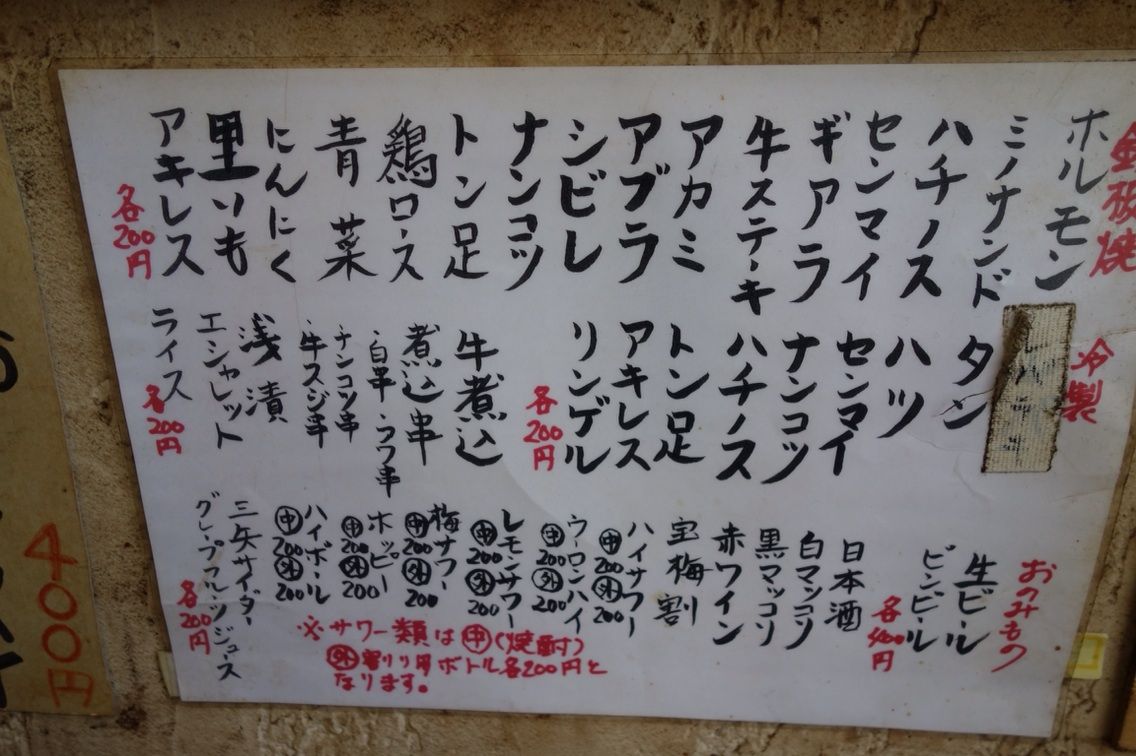 鉄板焼
ホルモン
ミノナンド
ハチノス
センマイ
ギアラ
牛ステーキ
アカミ
アブラ
シビレ
ナンコツ
トン足
鶏ロース
青菜
にんにく
里いも
アキレス
各200円
冷製
タン
ハツ
センマイ
ナンコツ
ハチノス
トン足
アキレス
リンゲル
各200円
牛煮込
煮込串
・白串・フワ串
・ナンコツ串
・牛スジ串
浅漬
エシャレット
ライス
各200円
おのみもの
生ビール
ビンビール
各400円
日本酒
白マッコリ
黒マッコリ
赤ワイン
宝梅割
ハイサワー
中200外200
ウーロンハイ
中200外200
レモンサワー
中200外200
梅サワー
中200外200
ホッピー
中200外200
ハイボール
中200外200
三矢サイダー
グレープフルーツジュース
各200円
※サワー類は中(焼酎)
外割り用ボトル各200円と
なります。
400円